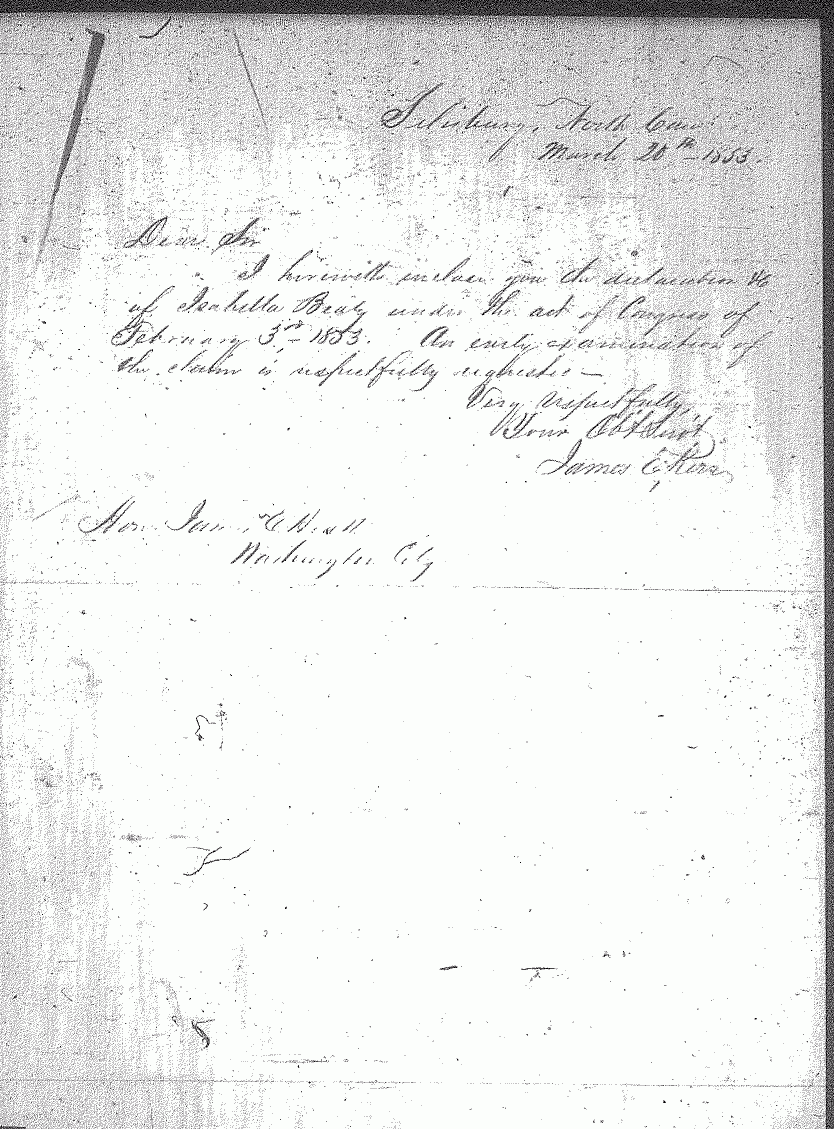 Salisbury, North Caro
March 20th - 1853.
Dear Sir
I herewith enclose you the declaration &c
of Isabella Beaty under the act of Congress of
February 3rd - 1853. An early examination of
the claim is respectfully requested —
Very respectfully
Your Obt Servt
James E Kerr
Hon. James E
Washington City